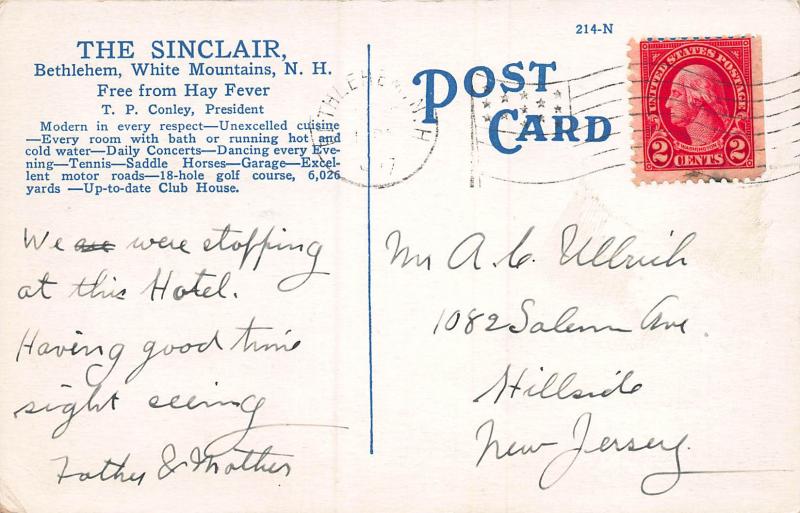 THE SINCLAIR,
Bethlehem, White Mountains, N. H.
Free from Hay Fever
T. P. Conley, President
Modern in every respect—Unexcelled cuisine
—Every room with bath or running hot and
cold water—Daily Concerts—Dancing every Eve-
ning—Tennis—Saddle Horses—Garage—Excel-
lent motor roads—18-hole golf course, 6,026
yards —Up-to-date Club House.
We are were stopping
at this Hotel.
Having good time
sight seeing
Father & Mother
214-N
POST
CARD
BETHLEHEM N H
UNITED STATES POSTAGE
WASHINGTON
2 CENTS 2
Mr A. C. Ullrich
1082 Salem Ave.
Hillside
New Jersey